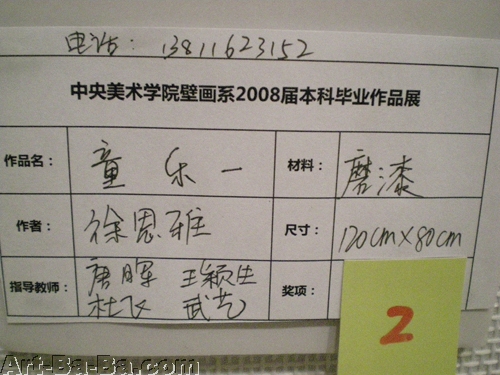 电话: 13811623152
中央美术学院壁画系2008届本科毕业作品展
作品名: 童乐一 材料: 磨漆
作者: 徐恩雅 尺寸: 120cm×80cm
指导教师: 唐晖 王颖生 奖项:
杜飞 武艺
2
Art-Ba-Ba.com